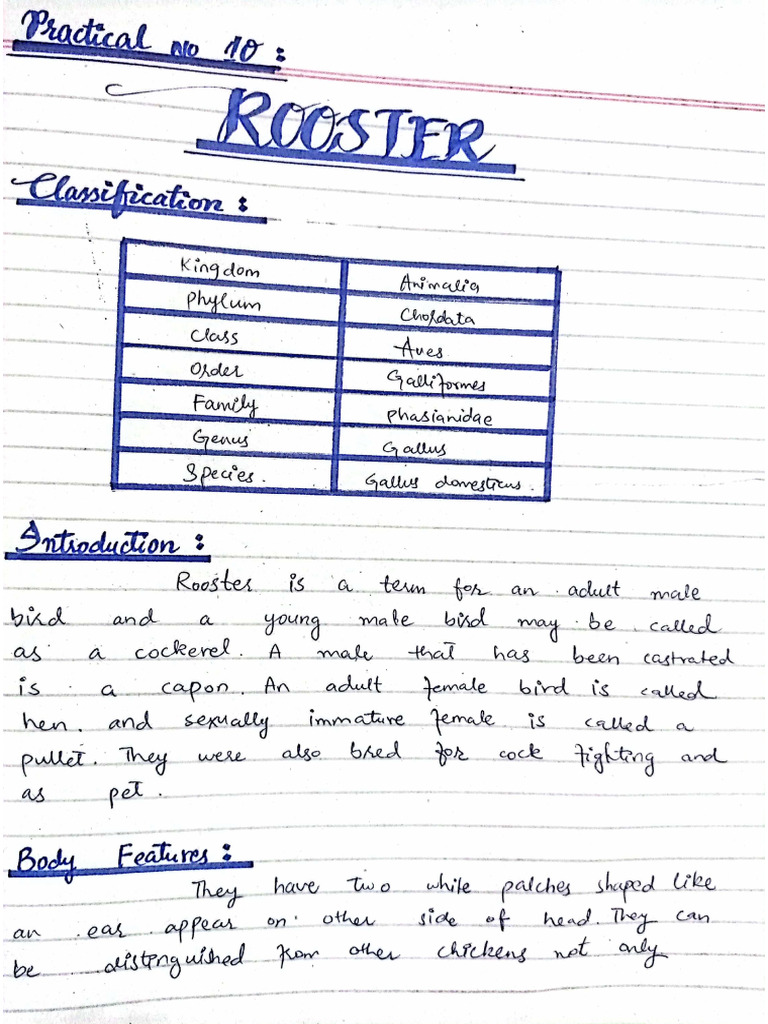 Practical No 10:
ROOSTER
Classification:
Kingdom Animalia
Phylum Chordata
Class Aves
Order Galliformes
Family Phasianidae
Genus Gallus
Species. Gallus domesticus.
Introduction:
Rooster is a term for an adult male
bird and a young male bird may be called
as a cockerel. A male that has been castrated
is a capon. An adult female bird is called
hen. and sexually immature female is called a
pullet. They were also bred for cock fighting and
as pet.
Body Features:
They have two white patches shaped like
an ear appear on other side of head. They can
be distinguished from other chickens not only